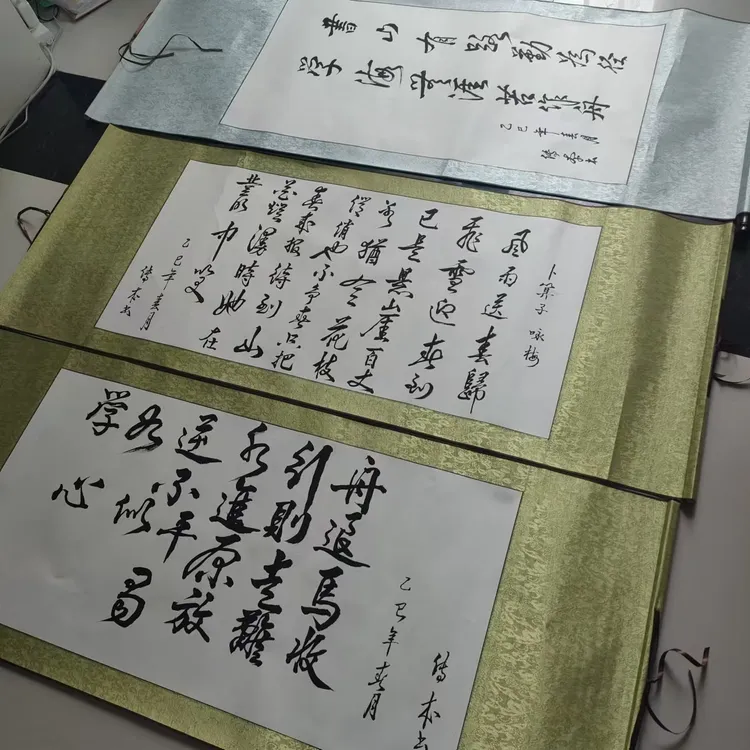 書山有路勤為径
学海無涯苦作舟
乙巳年春月
卜算子 咏梅
風雨送春歸
飛雪迎春到
已是悬崖百丈
猶有花枝
俏俏也不争春只把
春来报待到山
花烂漫時她在
中笑
乙巳年春月
学如逆水行舟
不進則退
心似平原走馬
易放難收
乙巳年春月